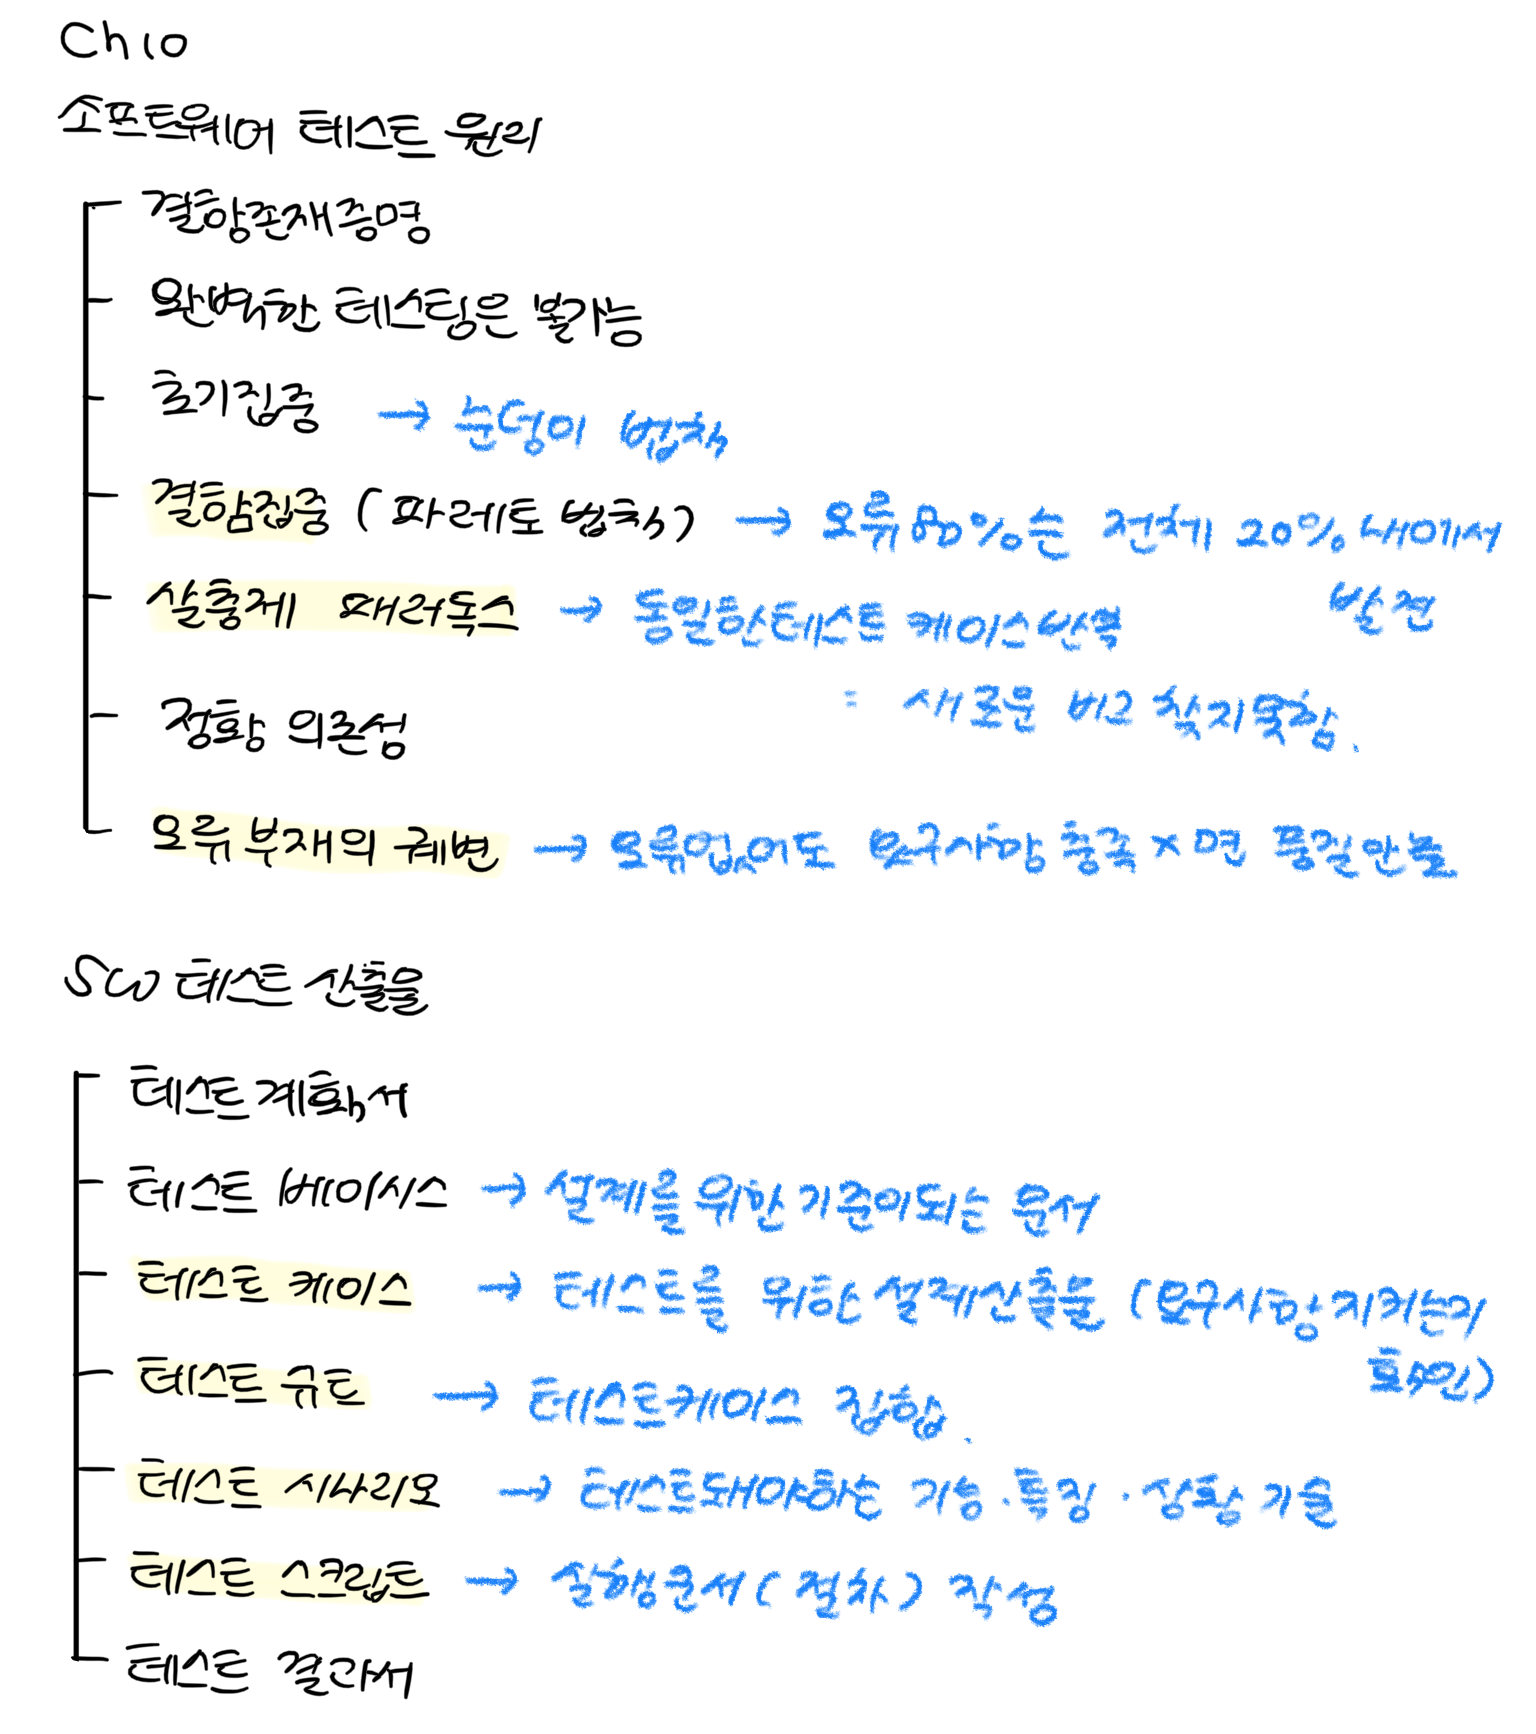 Ch10
소프트웨어 테스트 원리
결함존재증명
완벽한 테스팅은 불가능
초기집중 → 눈덩이 법칙
결함집중 (파레토 법칙) → 오류 80%는 전체 20% 내에서
발견
살충제 패러독스 → 동일한테스트 케이스반복
= 새로운 버그 찾지못함.
정황 의존성
오류 부재의 궤변 → 오류없어도 요구사항 충족×면 품질안높
SW 테스트 산출물
테스트계획서
테스트 베이시스 → 설계를 위한 기준이되는 문서
테스트 케이스 → 테스트를 위한 설계산출물 (요구사항지키는지
확인)
테스트 슈트 → 테스트케이스 집합.
테스트 시나리오 → 테스트돼야하는 기능·특징·상황 기술
테스트 스크립트 → 실행문서(절차) 작성
테스트 결과서